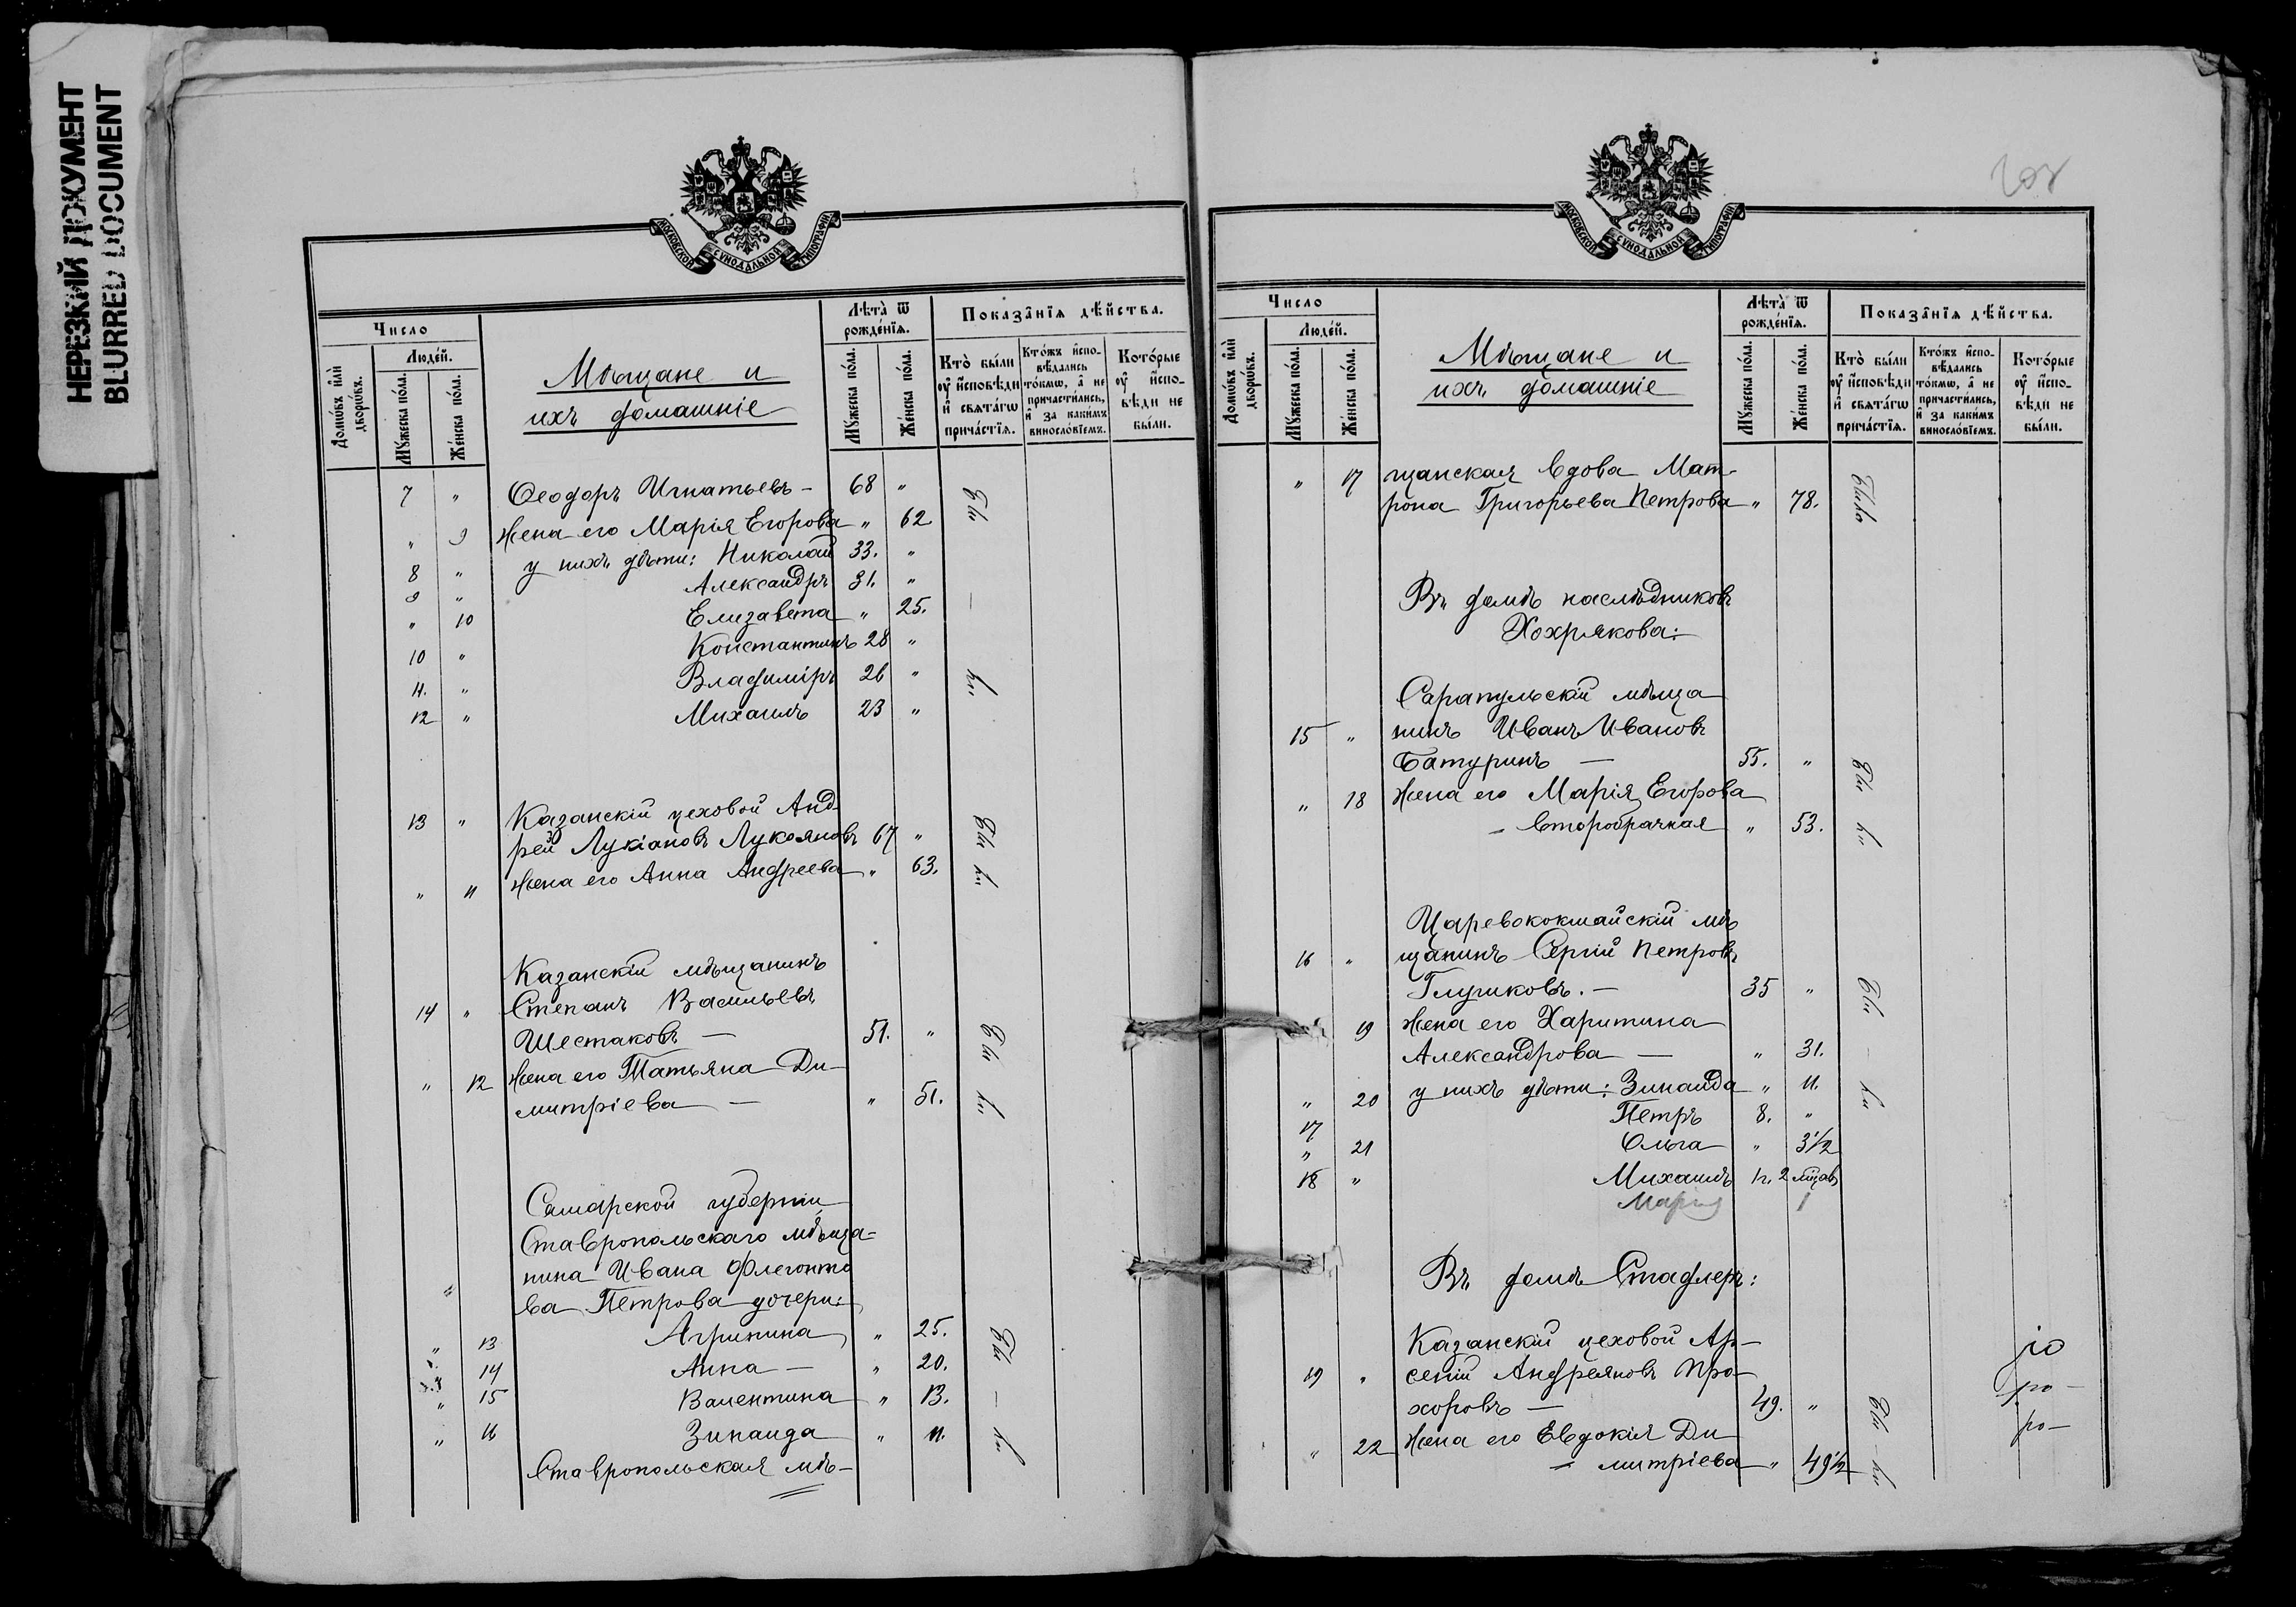 НЕРЕЗКИЙ ДОКУМЕНТ
BLURRED DOCUMENT
МОСКОВСКОЙ СУНОДАЛЬНОЙ ТИПОГРАФІИ
Число
Людей.
Домѡвъ и҆лѝ дворѡвъ.
Мꙋжеска по́ла.
Же́нска по́ла.
Мѣщане и
ихъ домашніе
Лѣта̀ ѿ рожде́нїѧ.
Мꙋжеска по́ла.
Же́нска по́ла.
Показа̑нїѧ дѣ́йства.
Кто̀ бы́ли оу҆ и҆сповѣди и҆ свѧта́гѡ прича́стїѧ.
Кто́жъ и҆спо-вѣдались то́кмѡ, а҆ не причасти́лись, и҆ за каки́мъ винослóвїемъ.
Кото́рые оу҆ и҆спо-вѣди не бы́ли.
7 " Ѳеодоръ Игнатьевъ - 68 "
" 9 Жена его Марія Егорова " 62
8 " у нихъ дѣти: Николай 33. "
9 " Александръ 31. "
" 10 Елизавета " 25.
10 " Константинъ 28 "
11. " Владиміръ 26 "
12 " Михаилъ 23 "
Были
13 " Казанскій цеховой Анд-
рей Лукіановъ Лукояновъ 67 "
" 11 Жена его Анна Андреева " 63.
Были
Казанскій мѣщанинъ
14 " Степанъ Васильевъ
Шестаковъ — 51. "
" 12 Жена его Татьяна Ди-
митріева — " 51.
Были
Самарской губерніи
Ставропольскаго мѣща-
нина Ивана Флегонто
ва Петрова дочери:
" 13 Агрипина " 25.
" 14 Анна — " 20.
" 15 Валентина " 13.
" 16 Зинаида " 11.
Были
Ставропольская мѣ-
МОСКОВСКОЙ СУНОДАЛЬНОЙ ТИПОГРАФІИ
Число
Людей.
Домѡвъ и҆лѝ дворѡвъ.
Мꙋжеска по́ла.
Же́нска по́ла.
Мѣщане и
ихъ домашніе
Лѣта̀ ѿ рожде́нїѧ.
Мꙋжеска по́ла.
Же́нска по́ла.
Показа̑нїѧ дѣ́йства.
Кто̀ бы́ли оу҆ и҆сповѣди и҆ свѧта́гѡ прича́стїѧ.
Кто́жъ и҆спо-вѣдались то́кмѡ, а҆ не причасти́лись, и҆ за каки́мъ винослóвїемъ.
Кото́рые оу҆ и҆спо-вѣди не бы́ли.
" 17 щанская вдова Мат-
рона Григорьева Петрова " 78.
Была
Въ домѣ наслѣдниковъ
Хохрякова:
Сарапульскій мѣща
15 " нинъ Иванъ Ивановъ
Батуринъ — 55. "
" 18 Жена его Марія Егорова
- второбрачная " 53.
Были
Царевококшайскій мѣ
16 " щанинъ Сергій Петровъ
Глушковъ. — 35 "
19 Жена его Харитина
Александрова — " 31.
" 20 у нихъ дѣти: Зинаида " 11.
17 Петръ 8. "
" 21 Ольга " 3½
18 " Михаилъ 1г. 2 мѣсяц
Мария 1
Были
Въ домѣ Стадлеръ:
Казанскій цеховой Ар-
19 " сеній Андреяновъ Про-
хоровъ — 49. "
" 22 Жена его Евдокія Ди
- митріева " 49½
Были